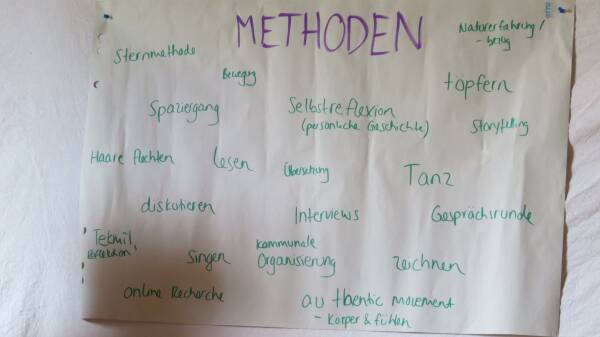 METHODEN
Naturerfahrung/
- bezug
Sternmethode
Bewegung
töpfern
Spaziergang
Selbstreflexion
(persönliche Geschichte)
Storytelling
Haare flechten
lesen
Übersetzung
Tanz
diskutieren
Interviews
Gesprächsrunde
Tekmil,
Reflektion
singen
kommunale
Organisierung
zeichnen
Online Recherche
authentic movement
- Körper & fühlen